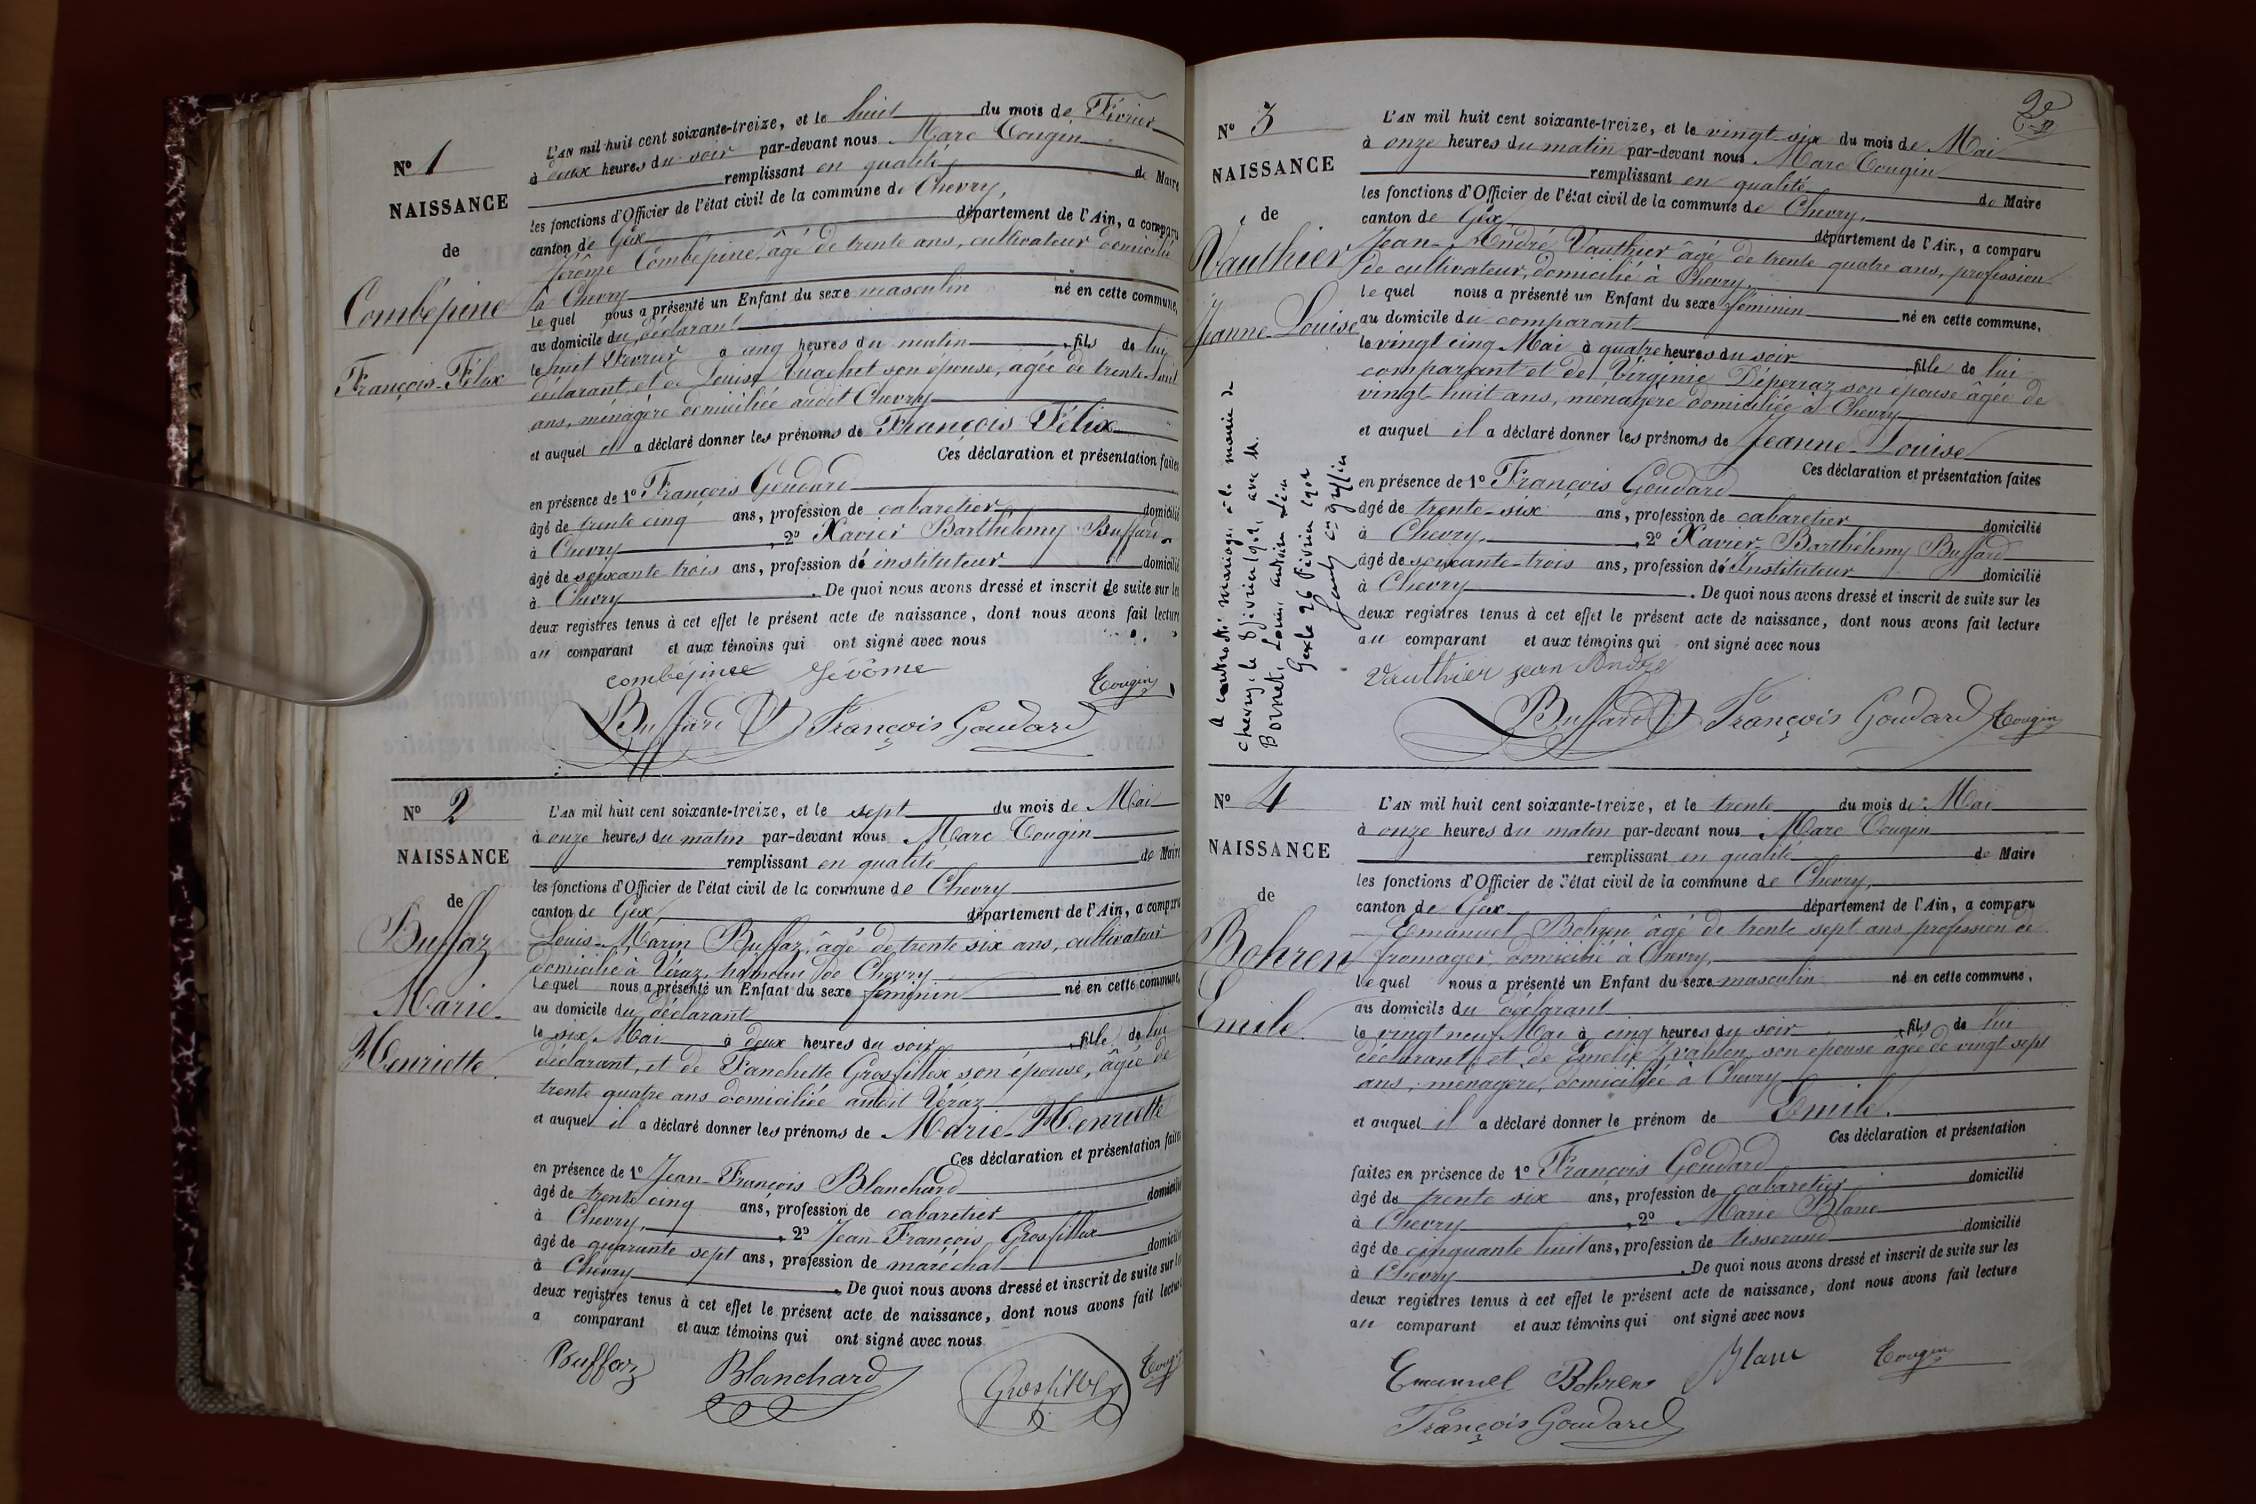 N° 1
NAISSANCE
de
Combépine
François-Félix
L'AN mil huit cent soixante-treize, et le huit du mois de Février
à deux heures du soir par-devant nous Marc Tougin
remplissant en qualité de Maire
les fonctions d'Officier de l'état civil de la commune de Chevry,
canton de Gex département de l'Ain, a comparu
Jérôme Combépine, âgé de trente ans, cultivateur domicilié
à Chevry
lequel nous a présenté un Enfant du sexe masculin né en cette commune,
au domicile du déclarant
le huit Février à cinq heures du matin, fils de lui
déclarant, et de Louise Vuachet son épouse, agée de trente huit
ans, ménagère domiciliée audit Chevry
et auquel il a déclaré donner les prénoms de François Félix
Ces déclaration et présentation faites
en présence de 1° François Goudard
âgé de trente cinq ans, profession de cabaretier domicilié
à Chevry, 2° Xavier Barthélemy Buffard
âgé de soixante-trois ans, profession de instituteur domicilié
à Chevry. De quoi nous avons dressé et inscrit de suite sur les
deux registres tenus à cet effet le présent acte de naissance, dont nous avons fait lecture
au comparant et aux témoins qui ont signé avec nous
combépine Jérôme Tougin
Buffard François Goudard
N° 2
NAISSANCE
de
Buffaz
Marie-
Henriette
L'AN mil huit cent soixante-treize, et le sept du mois de Mai
à onze heures du matin par-devant nous Marc Tougin
remplissant en qualité de Maire
les fonctions d'Officier de l'état civil de la commune de Chevry
canton de Gex, département de l'Ain, a comparu
Louis-Marin Buffaz, âgé de trente six ans, cultivateur
domicilié à Véraz, hameau de Chevry
lequel nous a présenté un Enfant du sexe féminin né en cette commune,
au domicile du déclarant
le six Mai à deux heures du soir, fille de lui
déclarant, et de Fanchette Grosfillex son épouse, âgée de
trente quatre ans domiciliée audit Véraz
et auquel il a déclaré donner les prénoms de Marie-Henriette
Ces déclaration et présentation faites
en présence de 1° Jean-François Blanchard
âgé de trente cinq ans, profession de cabaretier domicilié
à Chevry, 2° Jean-François Grosfillex
âgé de quarante sept ans, profession de maréchal domicilié
à Chevry. De quoi nous avons dressé et inscrit de suite sur les
deux registres tenus à cet effet le présent acte de naissance, dont nous avons fait lecture
a comparant et aux témoins qui ont signé avec nous
Buffaz Blanchard Grosfillex Tougin
N° 3
NAISSANCE
de
Vauthier
Jeanne-Louise
A contracté mariage à la mairie de
Chevry, le 8 février 1902, avec M.
Bornet, Louis, antoine Léon
Gex le 26 Février 1902
L'AN mil huit cent soixante-treize, et le vingt-six du mois de Mai
à onze heures du matin par-devant nous Marc Tougin
remplissant en qualité de Maire
les fonctions d'Officier de l'état civil de la commune de Chevry,
canton de Gex, département de l'Ain, a comparu
Jean-André Vauthier âgé de trente quatre ans, profession
de cultivateur, domicilié à Chevry,
lequel nous a présenté un Enfant du sexe féminin né en cette commune,
au domicile du comparant
le vingt cinq Mai à quatre heures du soir, fille de lui
comparant et de Virginie Déperraz son épouse âgée de
vingt-huit ans, ménagère domiciliée à Chevry
et auquel il a déclaré donner les prénoms de Jeanne-Louise
Ces déclaration et présentation faites
en présence de 1° François Goudard
âgé de trente-six ans, profession de cabaretier domicilié
à Chevry, 2° Xavier-Barthélemy Buffard
âgé de soixante-trois ans, profession de Instituteur domicilié
à Chevry. De quoi nous avons dressé et inscrit de suite sur les
deux registres tenus à cet effet le présent acte de naissance, dont nous avons fait lecture
au comparant et aux témoins qui ont signé avec nous
Vauthier jean André
Buffard François Goudard Tougin
N° 4
NAISSANCE
de
Bohren
Emile
L'AN mil huit cent soixante-treize, et le trente du mois de Mai
à onze heures du matin par-devant nous Marc Tougin
remplissant en qualité de Maire
les fonctions d'Officier de l'état civil de la commune de Chevry,
canton de Gex département de l'Ain, a comparu
Emanuel Bohren âgé de trente sept ans profession de
fromager, domicilié à Chevry,
lequel nous a présenté un Enfant du sexe masculin né en cette commune,
au domicile du déclarant
le vingt neuf Mai à cinq heures du soir, fils de lui
déclarant, et de son épouse âgée de vingt sept
ans, ménagère, domiciliée à Chevry
et auquel il a déclaré donner le prénom de Emile.
Ces déclaration et présentation
faites en présence de 1° François Goudard
âgé de trente six ans, profession de cabaretier domicilié
à Chevry, 2° Marie Blanc
âgé de cinquante huit ans, profession de tisserand domicilié
à Chevry. De quoi nous avons dressé et inscrit de suite sur les
deux registres tenus à cet effet le présent acte de naissance, dont nous avons fait lecture
au comparant et aux témoins qui ont signé avec nous
Emanuel Bohren Blanc Tougin
François Goudard